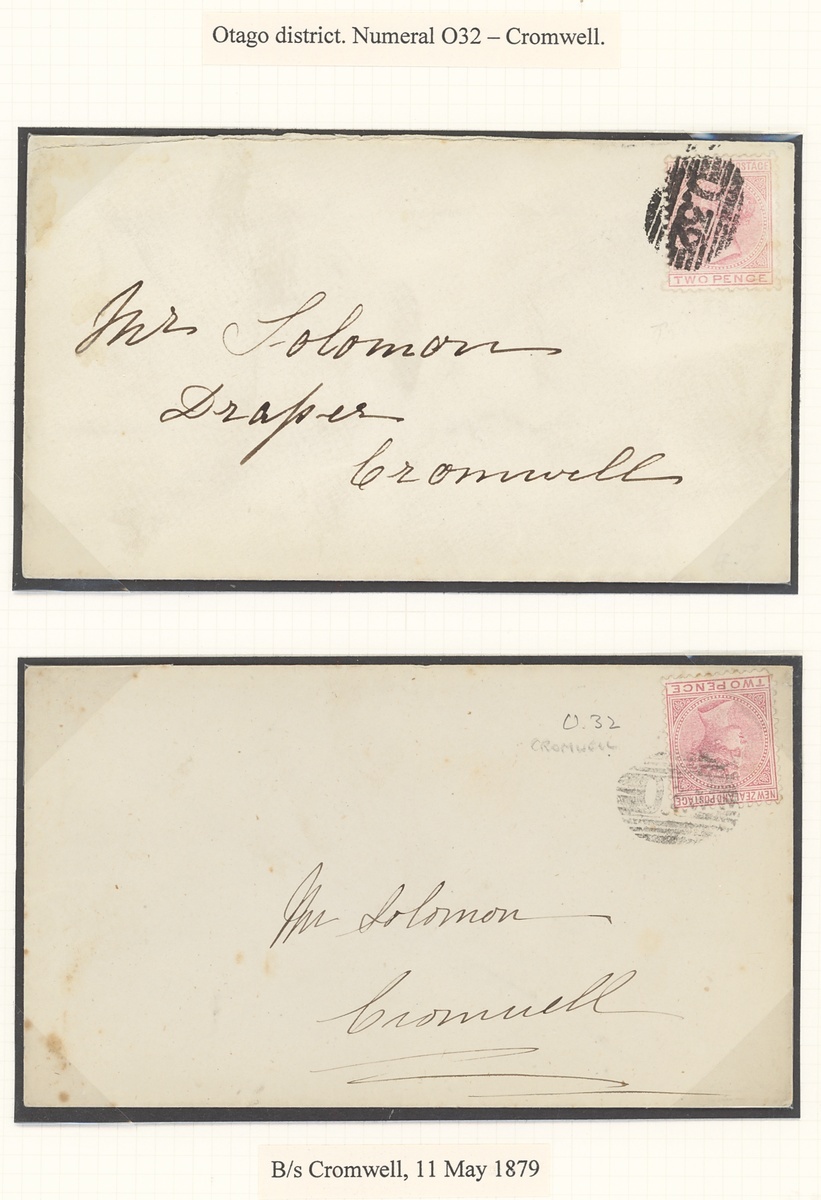 Otago district. Numeral O32 – Cromwell.
O.32
POSTAGE
TWO PENCE
Mr Solomon
Draper
Cromwell
TWO PENCE
O.32
CROMWELL
NEW ZEALAND POSTAGE
O
Mr Solomon
Cromwell
B/s Cromwell, 11 May 1879